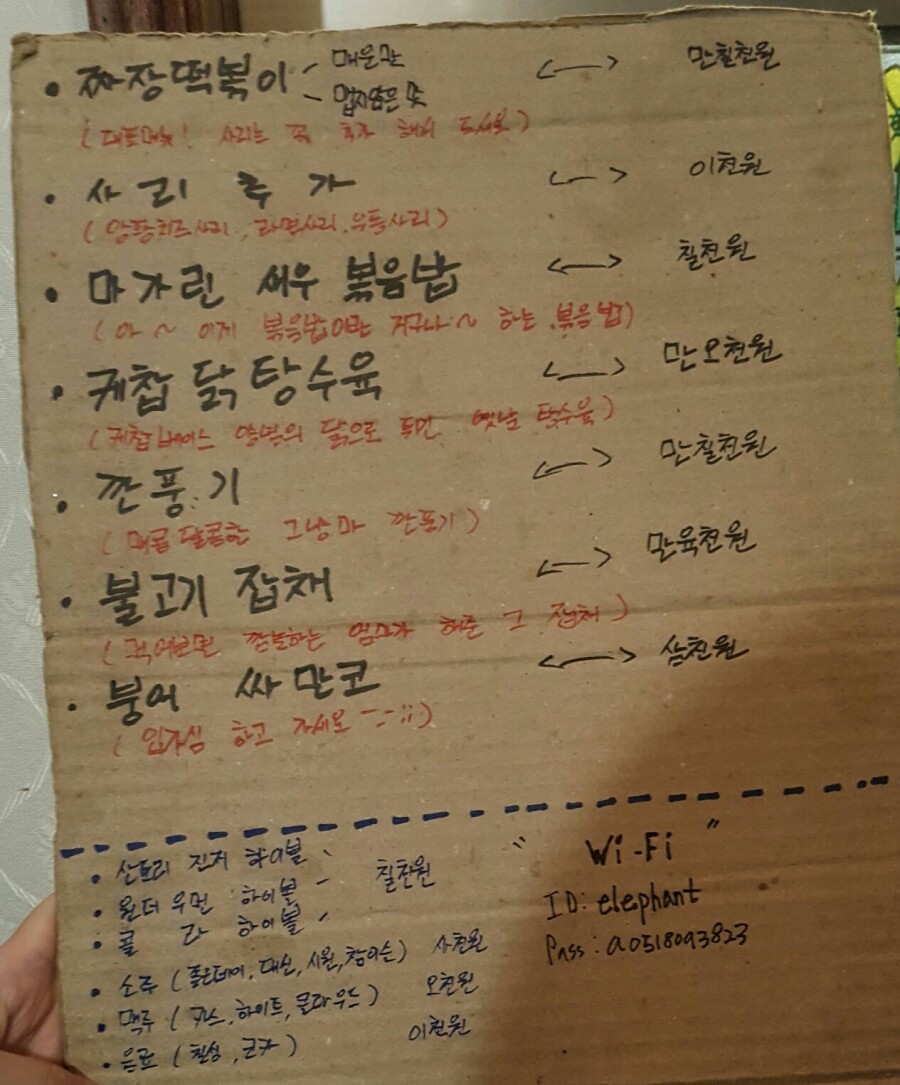 • 짜장떡볶이 - 매운맛 ↔ 만칠천원
- 맵지않은 맛
(대표메뉴! 사리는 꼭 추가 해서 드세요)
• 사리 추가 ↔ 이천원
(양푼치즈사리, 라면사리, 우동사리)
• 마가린 새우 볶음밥 ↔ 칠천원
(아 ~ 이게 볶음밥이란 거구나~ 하는 볶음밥)
• 케찹 닭탕수육 ↔ 만오천원
(케찹베이스 양념의 닭으로 튀긴 옛날 탕수육)
• 깐풍기 ↔ 만칠천원
(매콤달콤한 그냥마 깐풍기)
• 불고기 잡채 ↔ 만육천원
(먹어보면 깜놀하는 엄마가 해준 그 잡채)
• 붕어 싸만코 ↔ 삼천원
(입가심 하고 가세요 -.-;;)
• 산토리 진저 하이볼 -
• 원더 우먼 하이볼 - 칠천원
• 콜 라 하이볼 -
• 소주 (좋은데이, 대선, 시원, 참이슬) 사천원
• 맥주 (카스, 하이트, 클라우드) 오천원
• 음료 (칠성, 코카) 이천원
" Wi-Fi "
ID: elephant
Pass: a0518093823